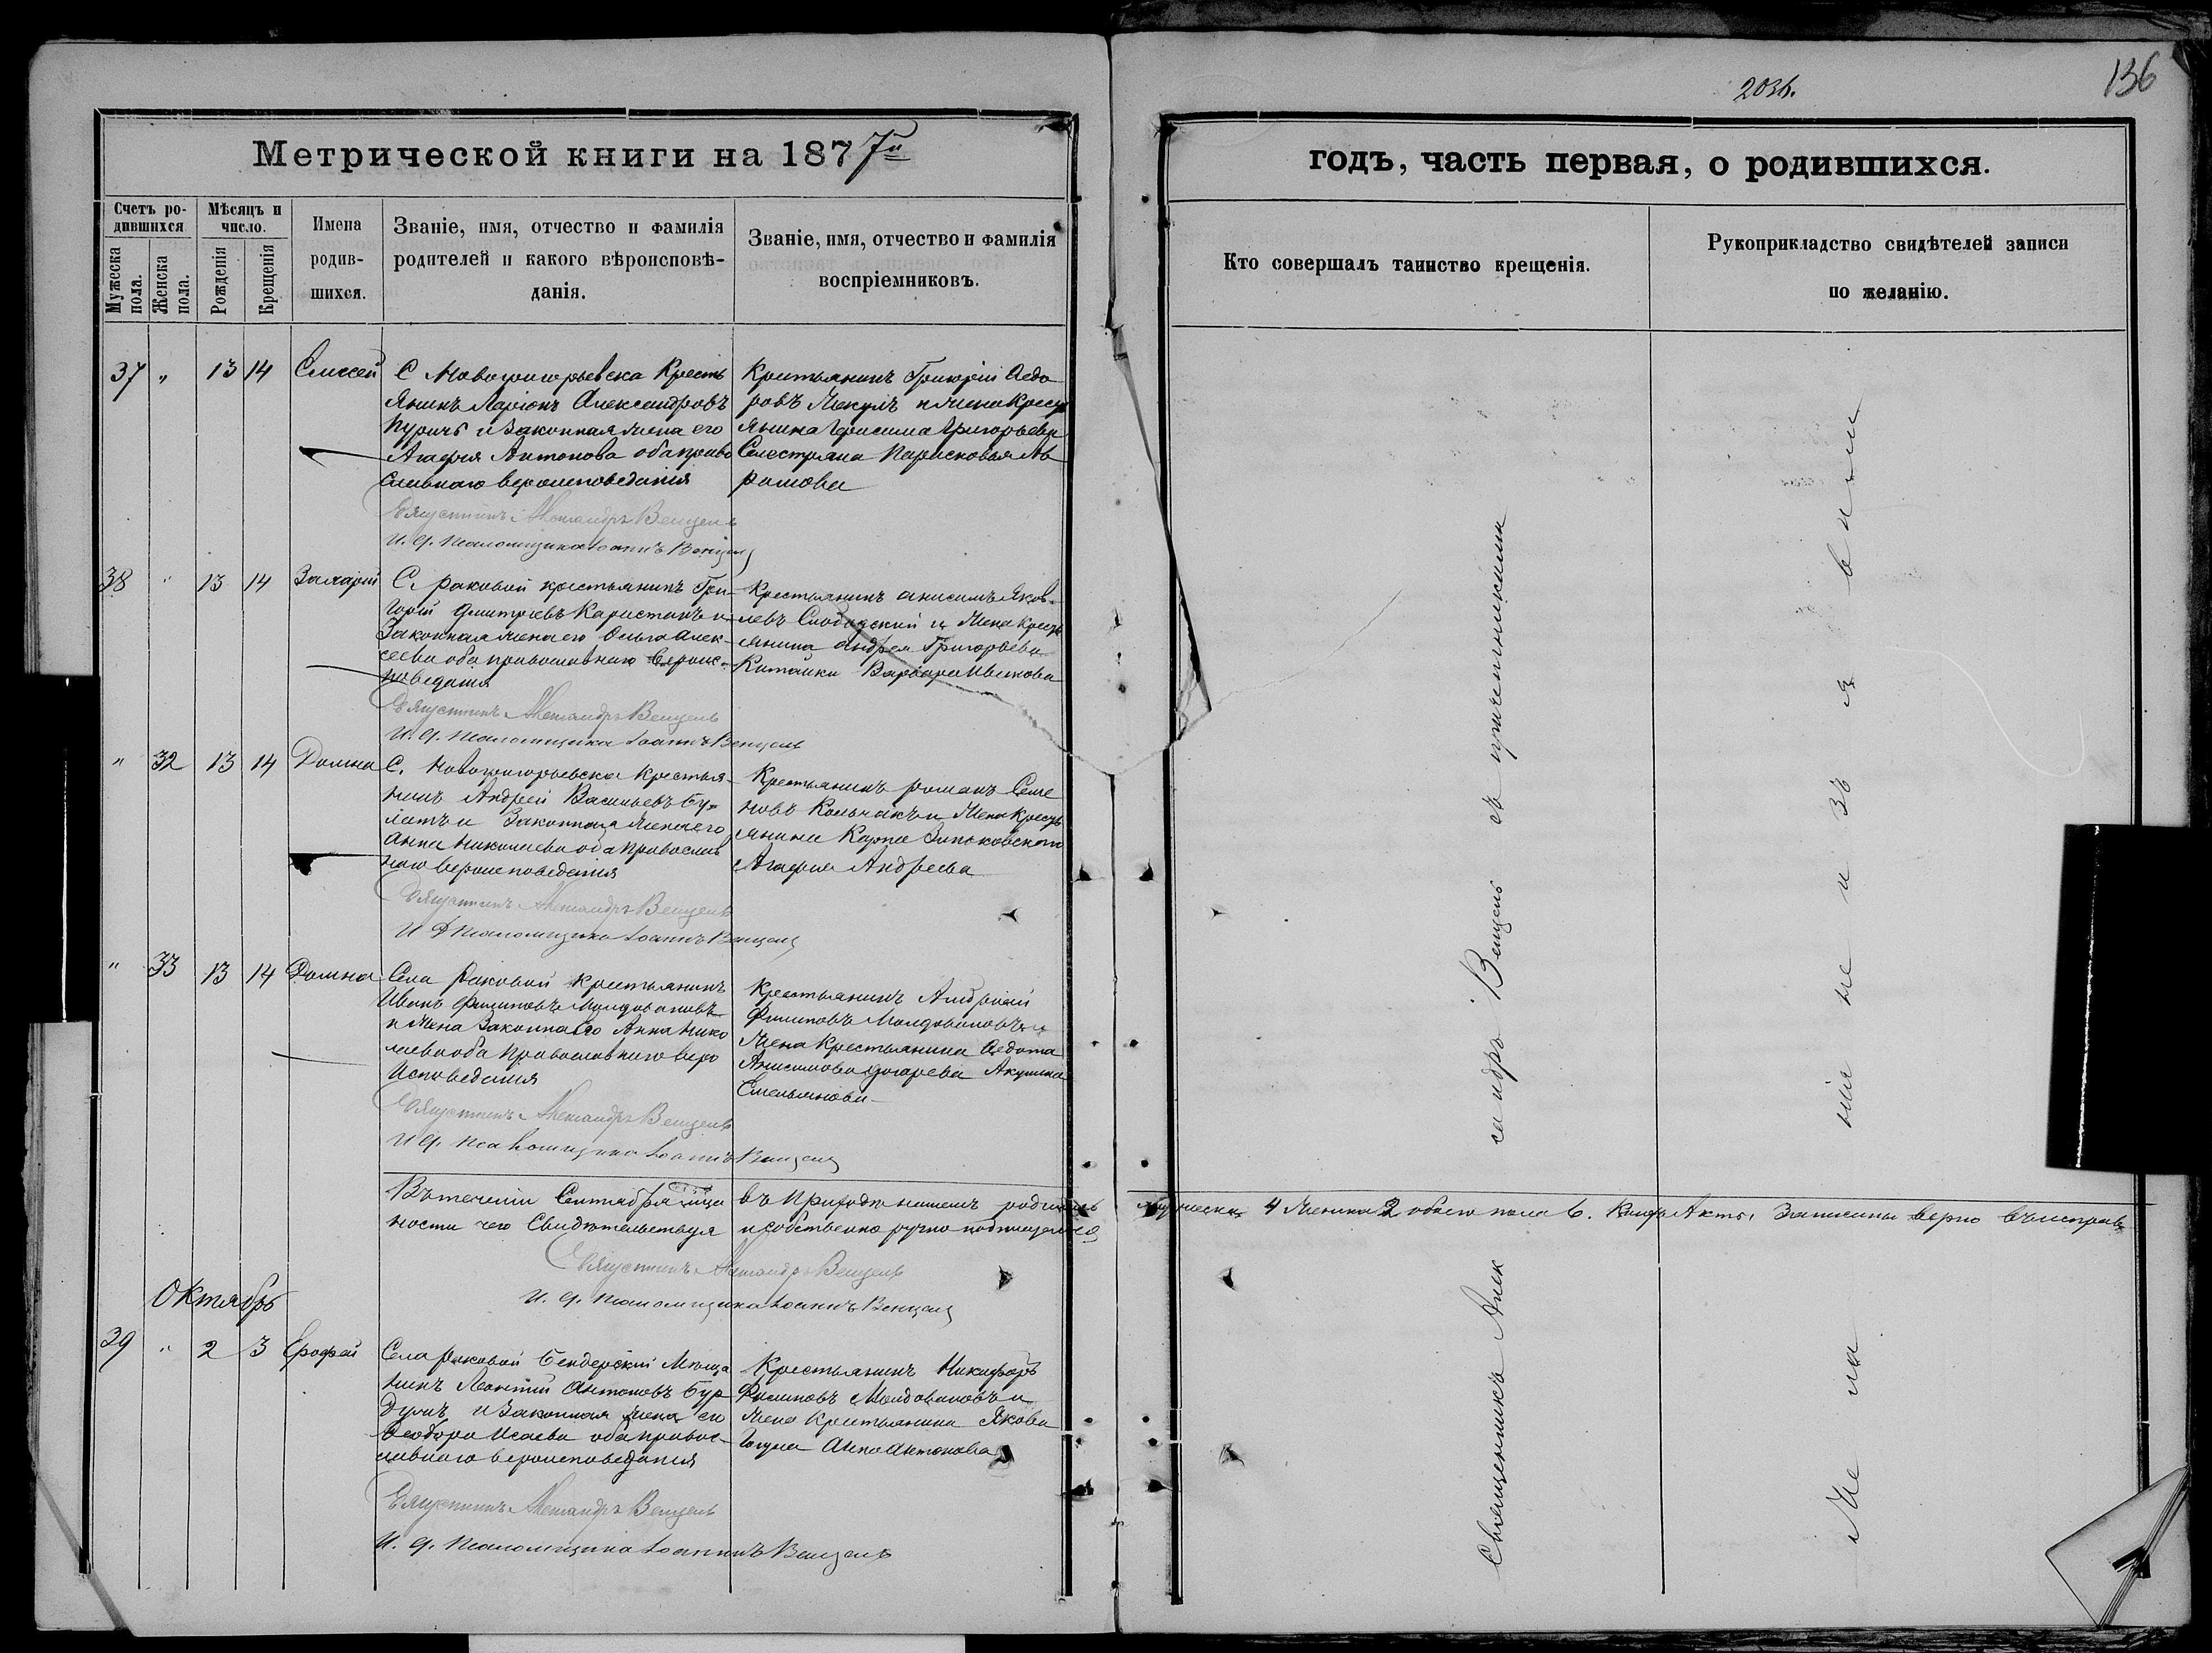 136
203б.
Метрической книги на 1877й
годъ, часть первая, о родившихся.
Счетъ ро-
дившихся
Мужеска пола.
Женска пола.
Мѣсяцъ и
число.
Рожденія
Крещенія
Имена
родив-
шихся.
Званіе, имя, отчество и фамилія
родителей и какого вѣроисповѣ-
данія.
Званіе, имя, отчество и фамилія
воспріемниковъ.
Кто совершалъ таинство крещенія.
Рукоприкладство свидѣтелей записи
по желанію.
37 " 13 14 Елисей
С Новогригорьевска Кресть
янинъ Ларіонъ Александровъ
и Законная жена его
Агафія Антонова оба право
славнаго вероисповеданія
Александръ Венцель
И. д. псаломщика Іоаннъ Венцель
Крестьянинъ Григорій Федо
ровъ и жена Крест
янина Герасима Григорьева
38 " 13 14 Захарій
С. раковой крестьянинъ Гри-
горій Дмитріевъ Каристанъ и
Законная жена его Ольга Алек-
сеева оба православнаго вероис-
поведанія
Александръ Венцель
И. д. псаломщика Іоаннъ Венцель
Крестьянинъ анисимъ Яков-
левъ Слободский и Жена Крест
янина андрея Григорьева
Китайка Варвара Иванова
" 32 13 14 Домна
С. Новогригорьевска Крестья-
нинъ Андрей Васильевъ Бу-
латъ и Законная жена его
Анна Николаева оба православ
наго вероисповеданія
Александръ Венцель
И Д псаломщика Іоаннъ Венцель
Крестьянинъ романъ Семе
новъ Колчакъ и Жена Крест
янина Карпа Зиньковского
Агафія Андреева
" 33 13 14 Домна
Села Раковой Крестьянинъ
Иванъ Филиповъ Молдовановъ
и Жена Законна его Анна Нико
лаева оба православнаго веро
исповеданія
Александръ Венцель
И д. псаломщика Іоаннъ Венцель
Крестьянинъ Андрей
Филиповъ Молдовановъ и
Жена Крестьянина Федота
Анисимова Акулина
Емельянова
Въ теченіи Сентября м҃ца въ приходѣ нашемъ родилось мужеска 4 Женска 2 обоего пола 6. Акты Записаны верно въ исправ
ности чего Свидѣтельствуя и собственно ручно подписуемся
Александръ Венцель
И. д. псаломщика Іоаннъ Венцель
Октябрь
39 " 2 3 Ерофей
Села раковой Бендерскій Меща
нинъ Леонтій Антоновъ Бур-
дужъ и Законная жена его
Феодора Исаева оба правос-
лавнаго вероисповеданія
Александръ Венцель
И. д. псаломщика Іоаннъ Венцель
Крестьянинъ Никифоръ
Филиповъ Молдовановъ и
жена Крестьянина Якова
Анна Антонова
Священникъ Александръ Венцель съ причетниками
Желанія не изъявили